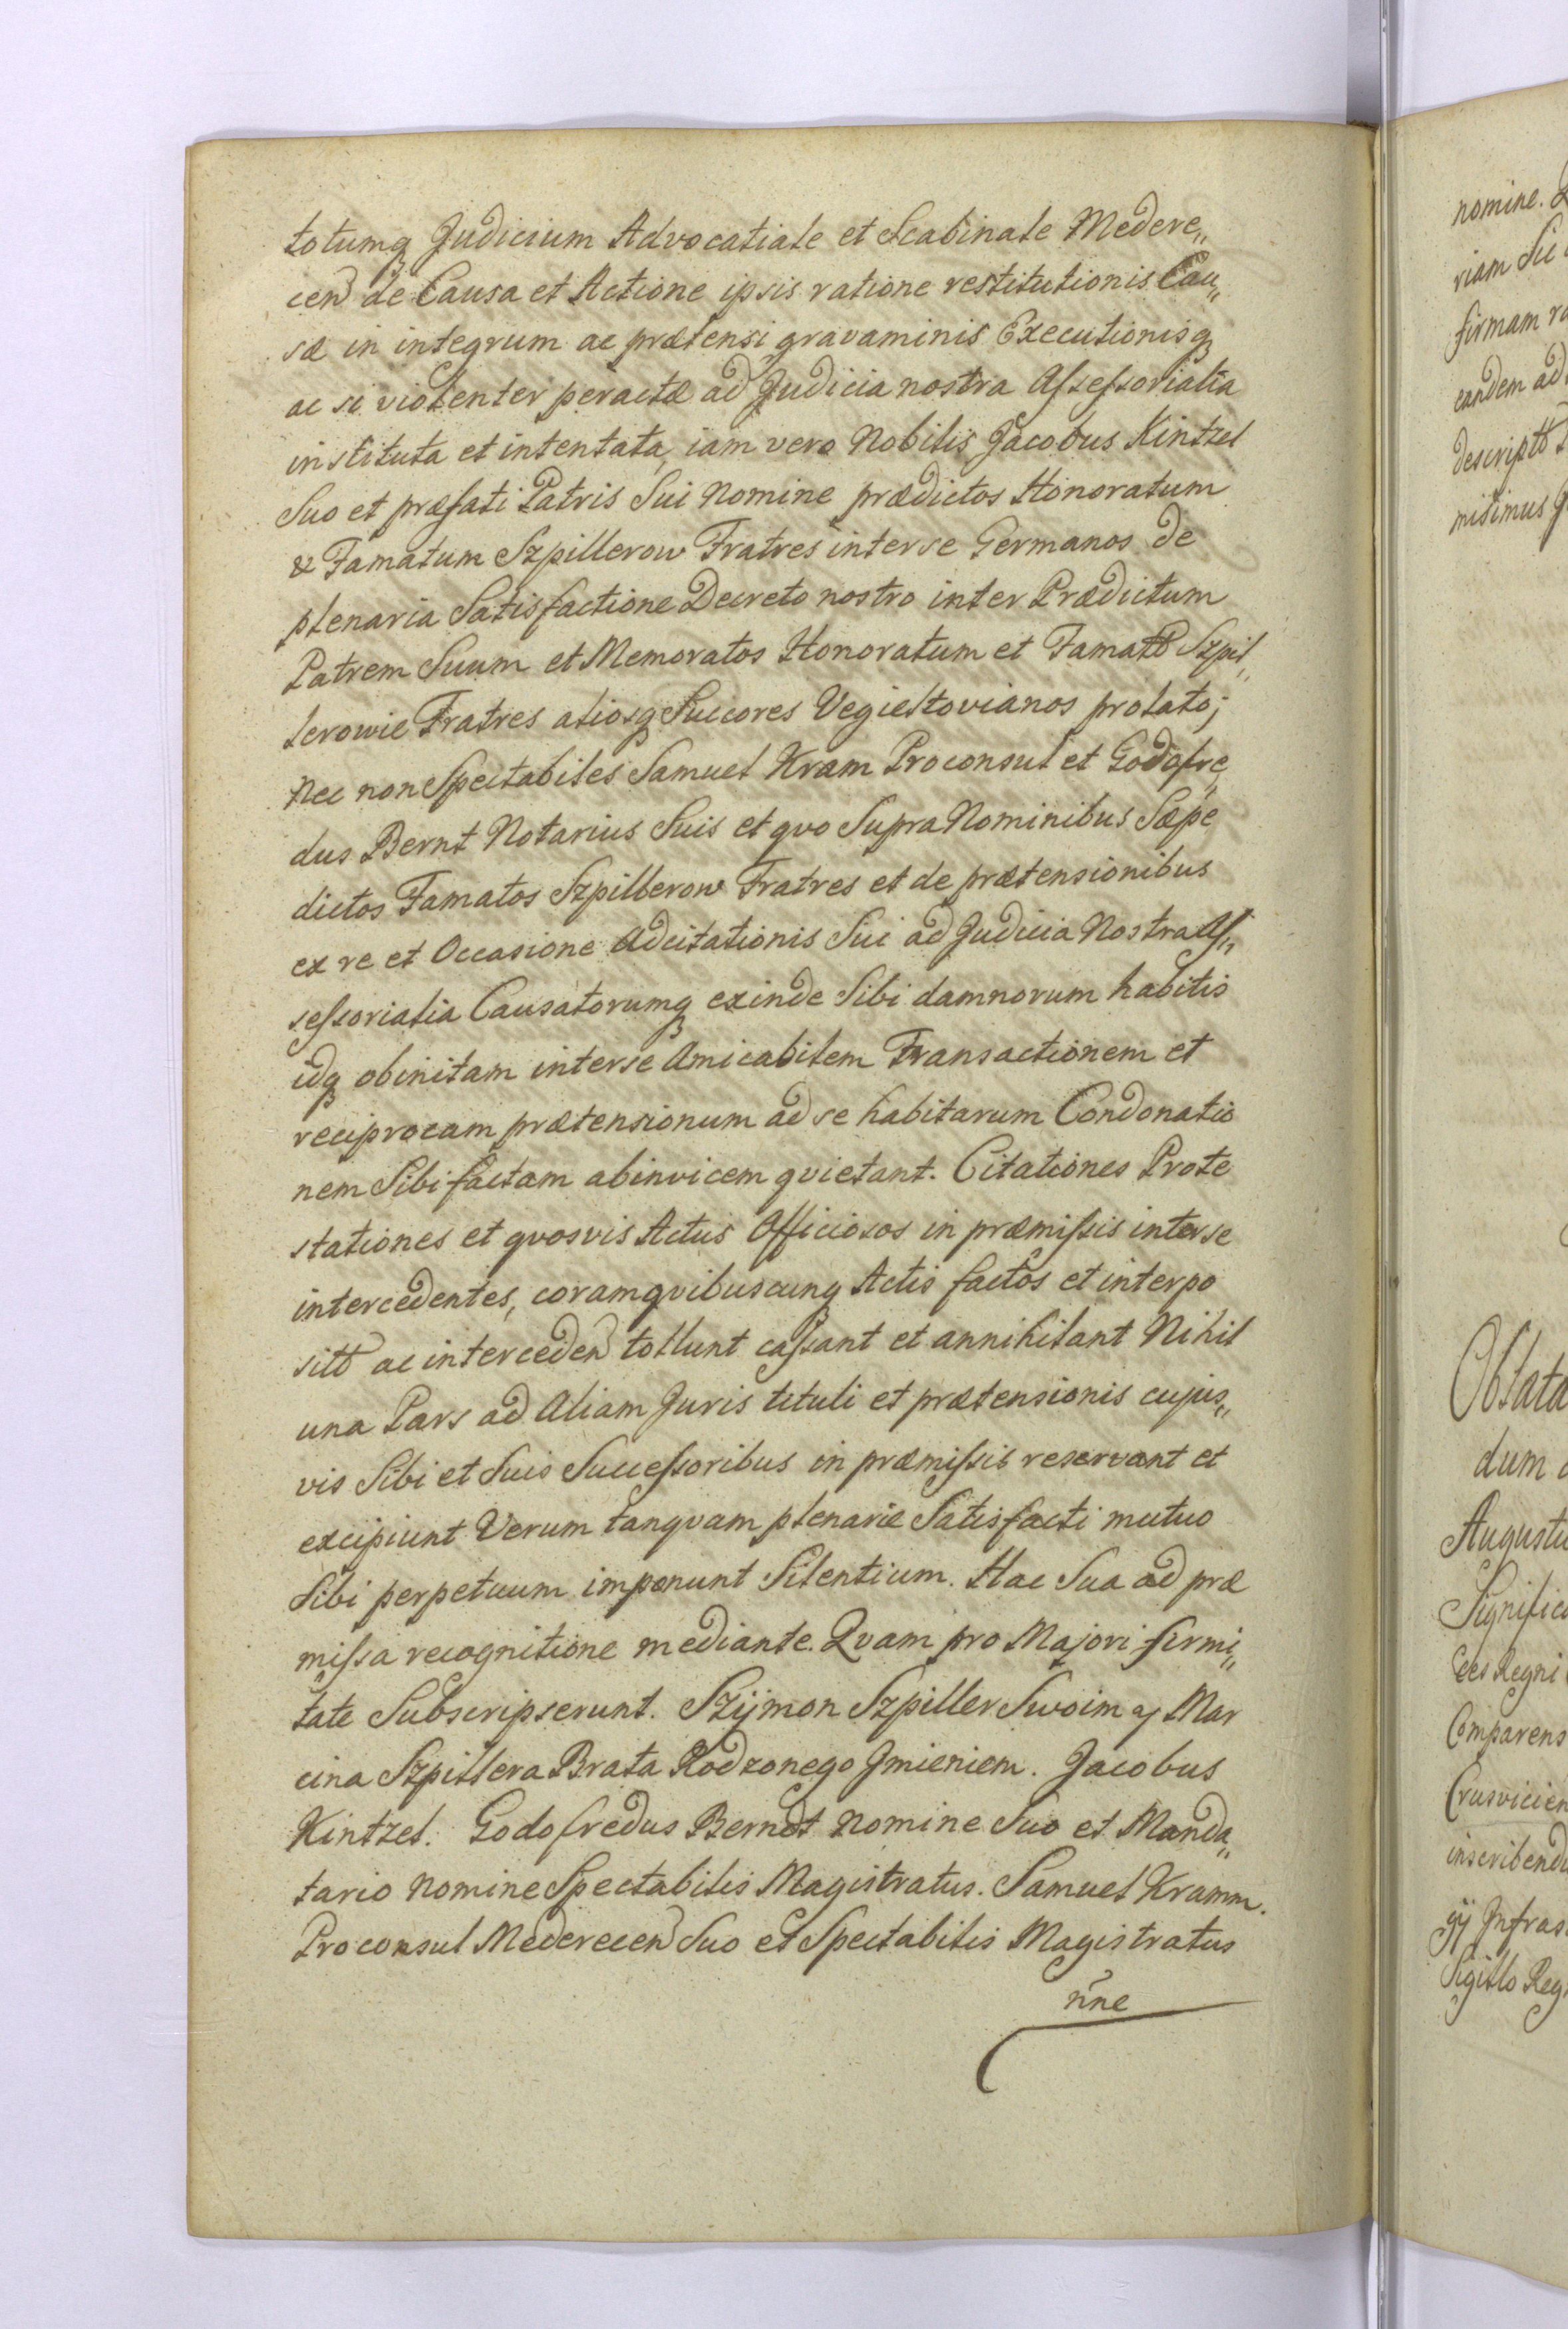 totumq Judicium Advocatiale et Scabinale Medere„
cen de Causa et Actione ipsis ratione restitutionis Cau„
sæ in integrum ac prætensi gravaminis Executionisq
ac si violenter peractæ ad Judicia nostra Aſseſsorialia
instituta et intentata, iam vero Nobilis Jacobus Kintzel
Suo et præfati Patris Sui Nomine prædictos Honoratum
& Famatum Szpillerow Fratres interse Germanos de
plenaria Satisfactione Decreto nostro inter Prædictum
Patrem Suum et Memoratos Honoratum et Famatt Szpil„
lerowie Fratres aliosq Succores Vegieltovianos prolato;
Nec non Spectabiles Samuel Kram Proconsul et Godofre„
dus Bernt Notarius Suis et qvo Supra Nominibus Sæpe
dictos Famatos Szpillerow Fratres et de prætensionibus
ex re et Occasione Adcitationis Sui ad Judicia Nostra Aſ„
seſsorialia Causatorumq exinde Sibi damnorum habitis
idq obinitam interse Amicabilem Transactionem et
reciprocam prætensionum ad se habitarum Condonatio
nem Sibi factam abinvicem qvietant. Citationes Prote
stationes et qvosvis Actus Officiosos in præmiſsis interse
intercedentes, coramqvibuscunq Actis factos et interpo
sitt ac interceden tollunt caſsant et annihilant Nihil
una Pars ad Aliam Juris tituli et prætensionis cujus„
vis Sibi et Suis Succeſsoribus in præmiſsis reservant et
excipiunt Verum tanqvam plenarie Satisfacti mutuo
Sibi perpetuum imponunt Silentium. Hac Sua ad præ
miſsa recognitione mediante. Qvam pro Majori firmi„
tate Subscripserunt. Szÿmon Szpiller Swoim y Mar
cina Szpillera Brata Rodzonego Jmieniem. Jacobus
Kintzel. Godofredus Berndt Nomine Suo et Manda„
tario Nomine Spectabilis Magistratus. Samuel Kramm.
Proconsul Mederecen Suo et Spectabilis Magistratus
nne
nomine.
riam Su
firmam
eandem ad
descriptt
misimus
Oblata
dum
Augustu
Significa
ces Regni
Comparens
Crusvicien
inscribend
gÿ Infras
Sigillo Reg